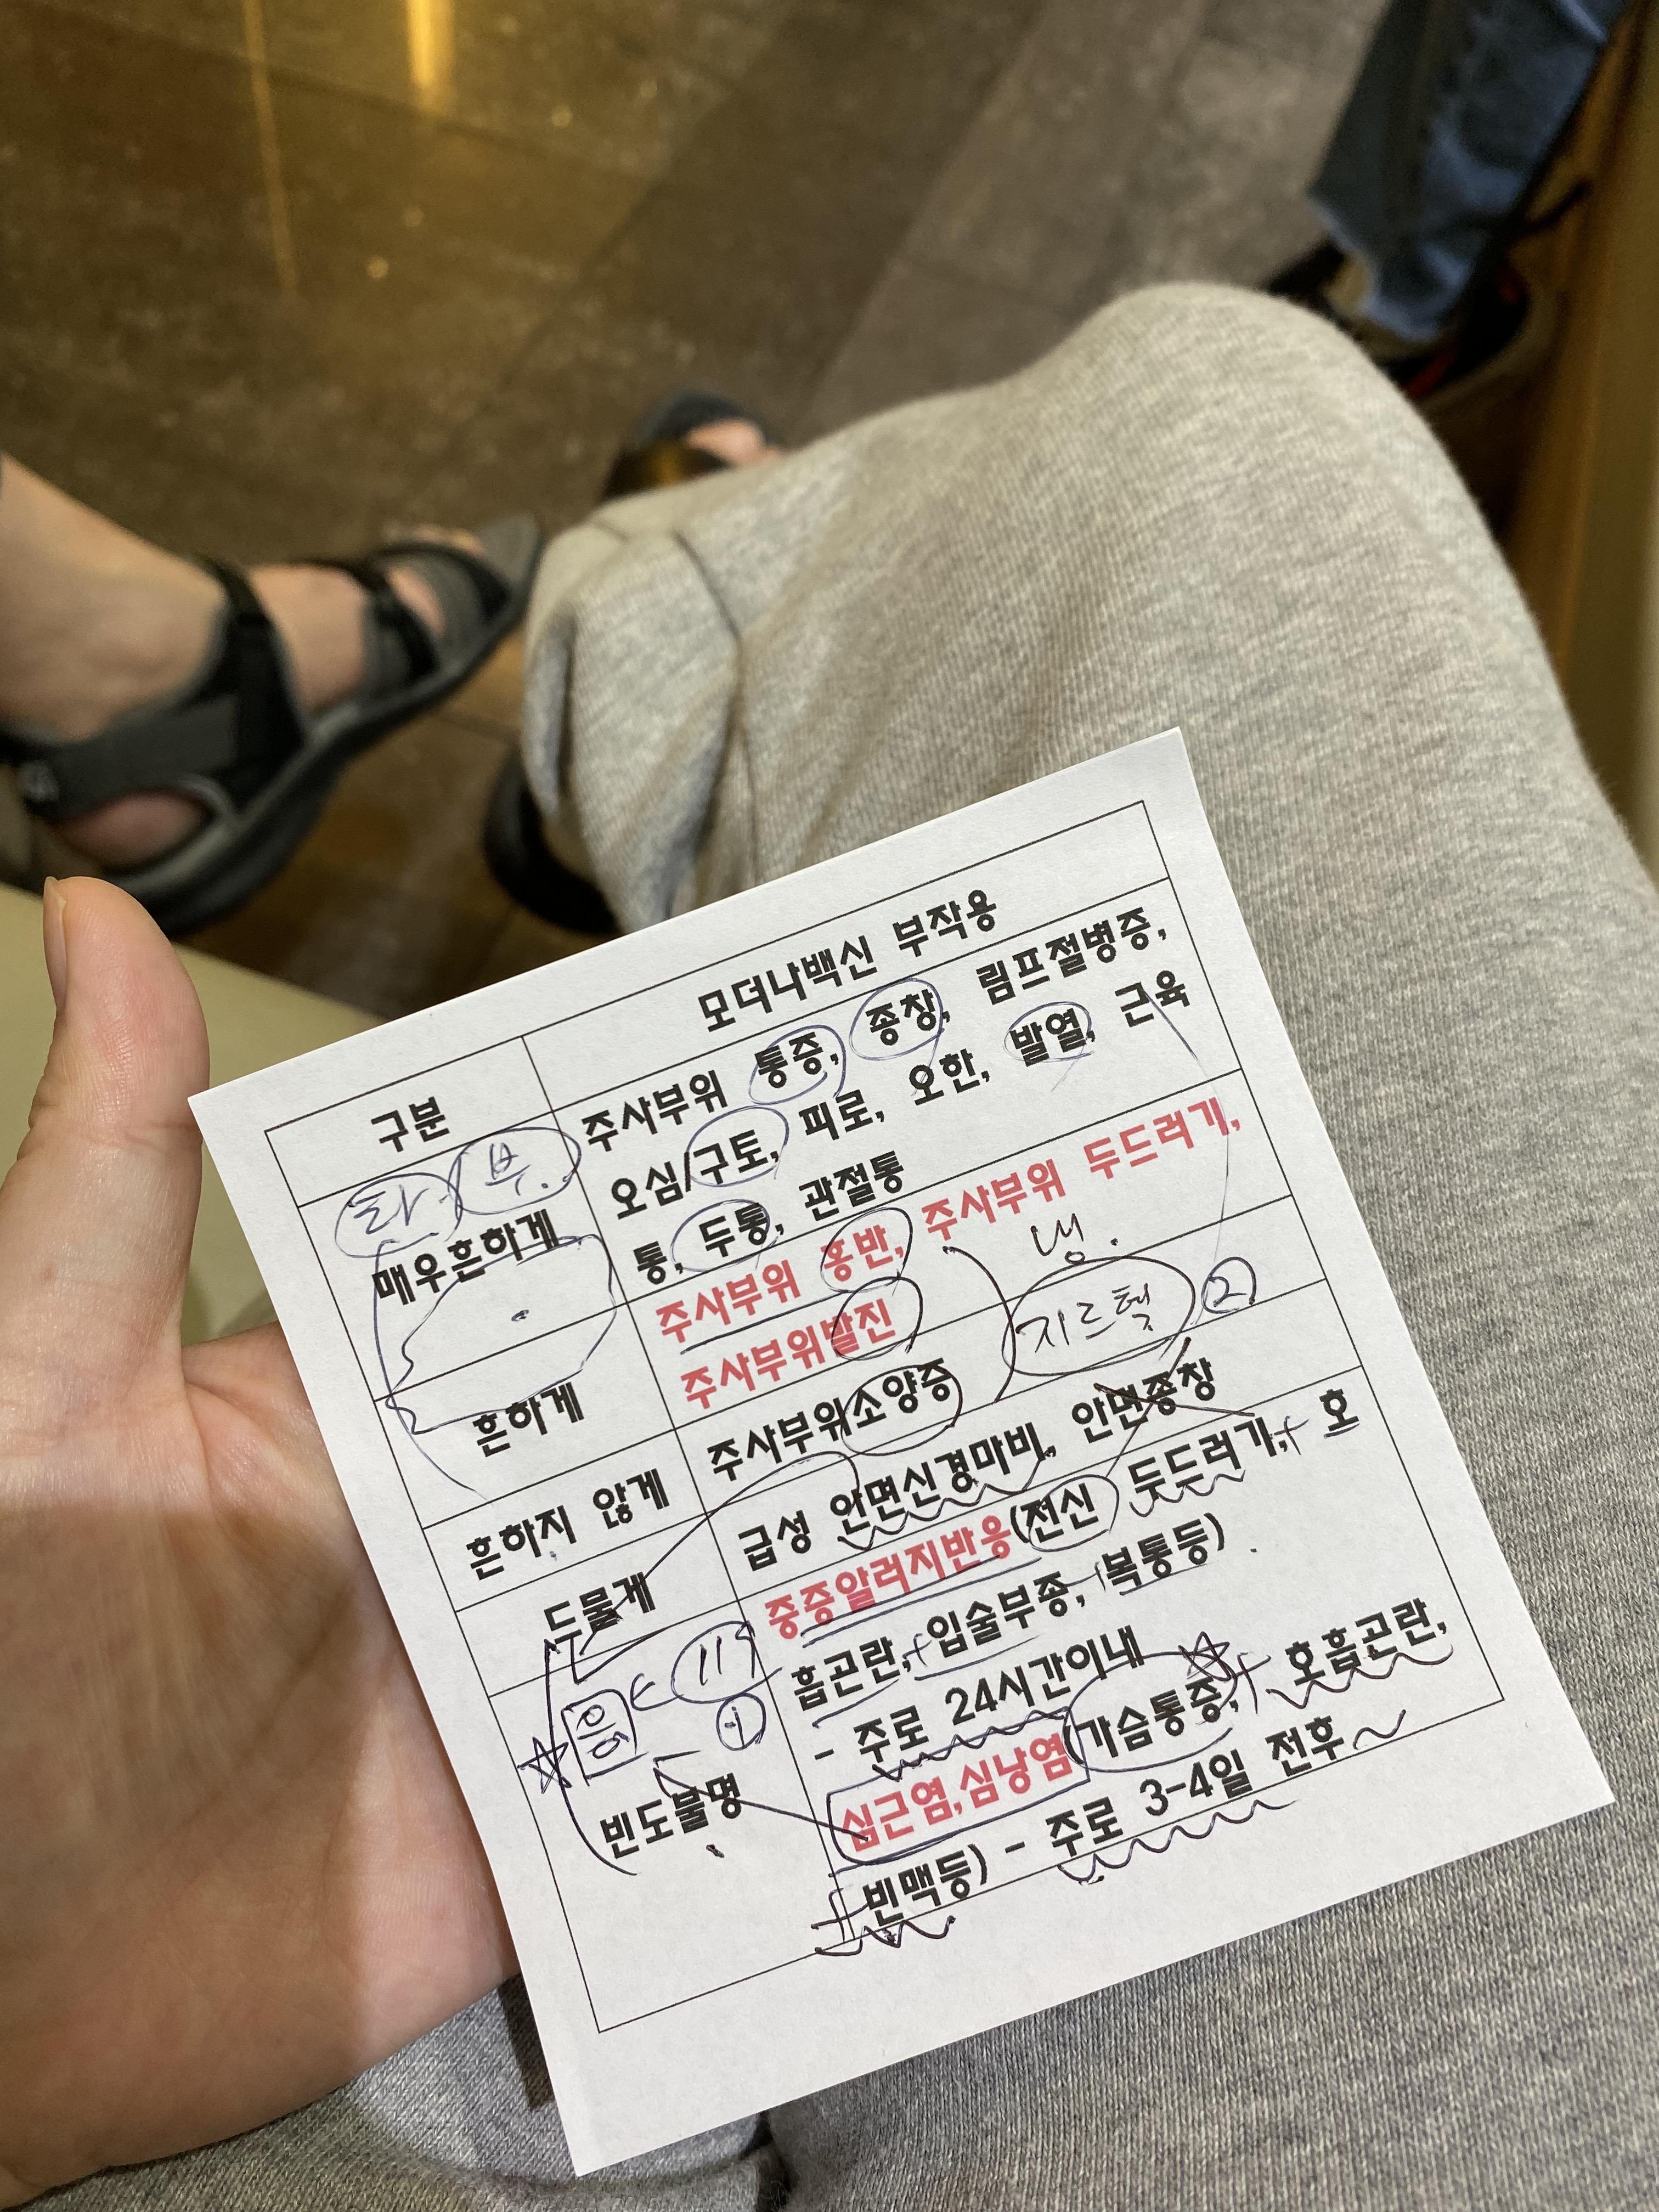 구분 모더나백신 부작용
매우흔하게 주사부위 통증, 종창, 림프절병증,
오심/구토, 피로, 오한, 발열, 근육
통, 두통, 관절통
타 부.
흔하게 주사부위 홍반, 주사부위 두드러기,
주사부위발진
냉.
지르텍 2
흔하지 않게 주사부위소양증
드물게 급성 안면신경마비, 안면종창
빈도불명 중증알러지반응(전신 두드러기, + 호
흡곤란, + 입술부종, 복통등)
- 주로 24시간이내
심근염,심낭염(가슴통증, + 호흡곤란,
+ 빈맥등) - 주로 3-4일 전후
119
응